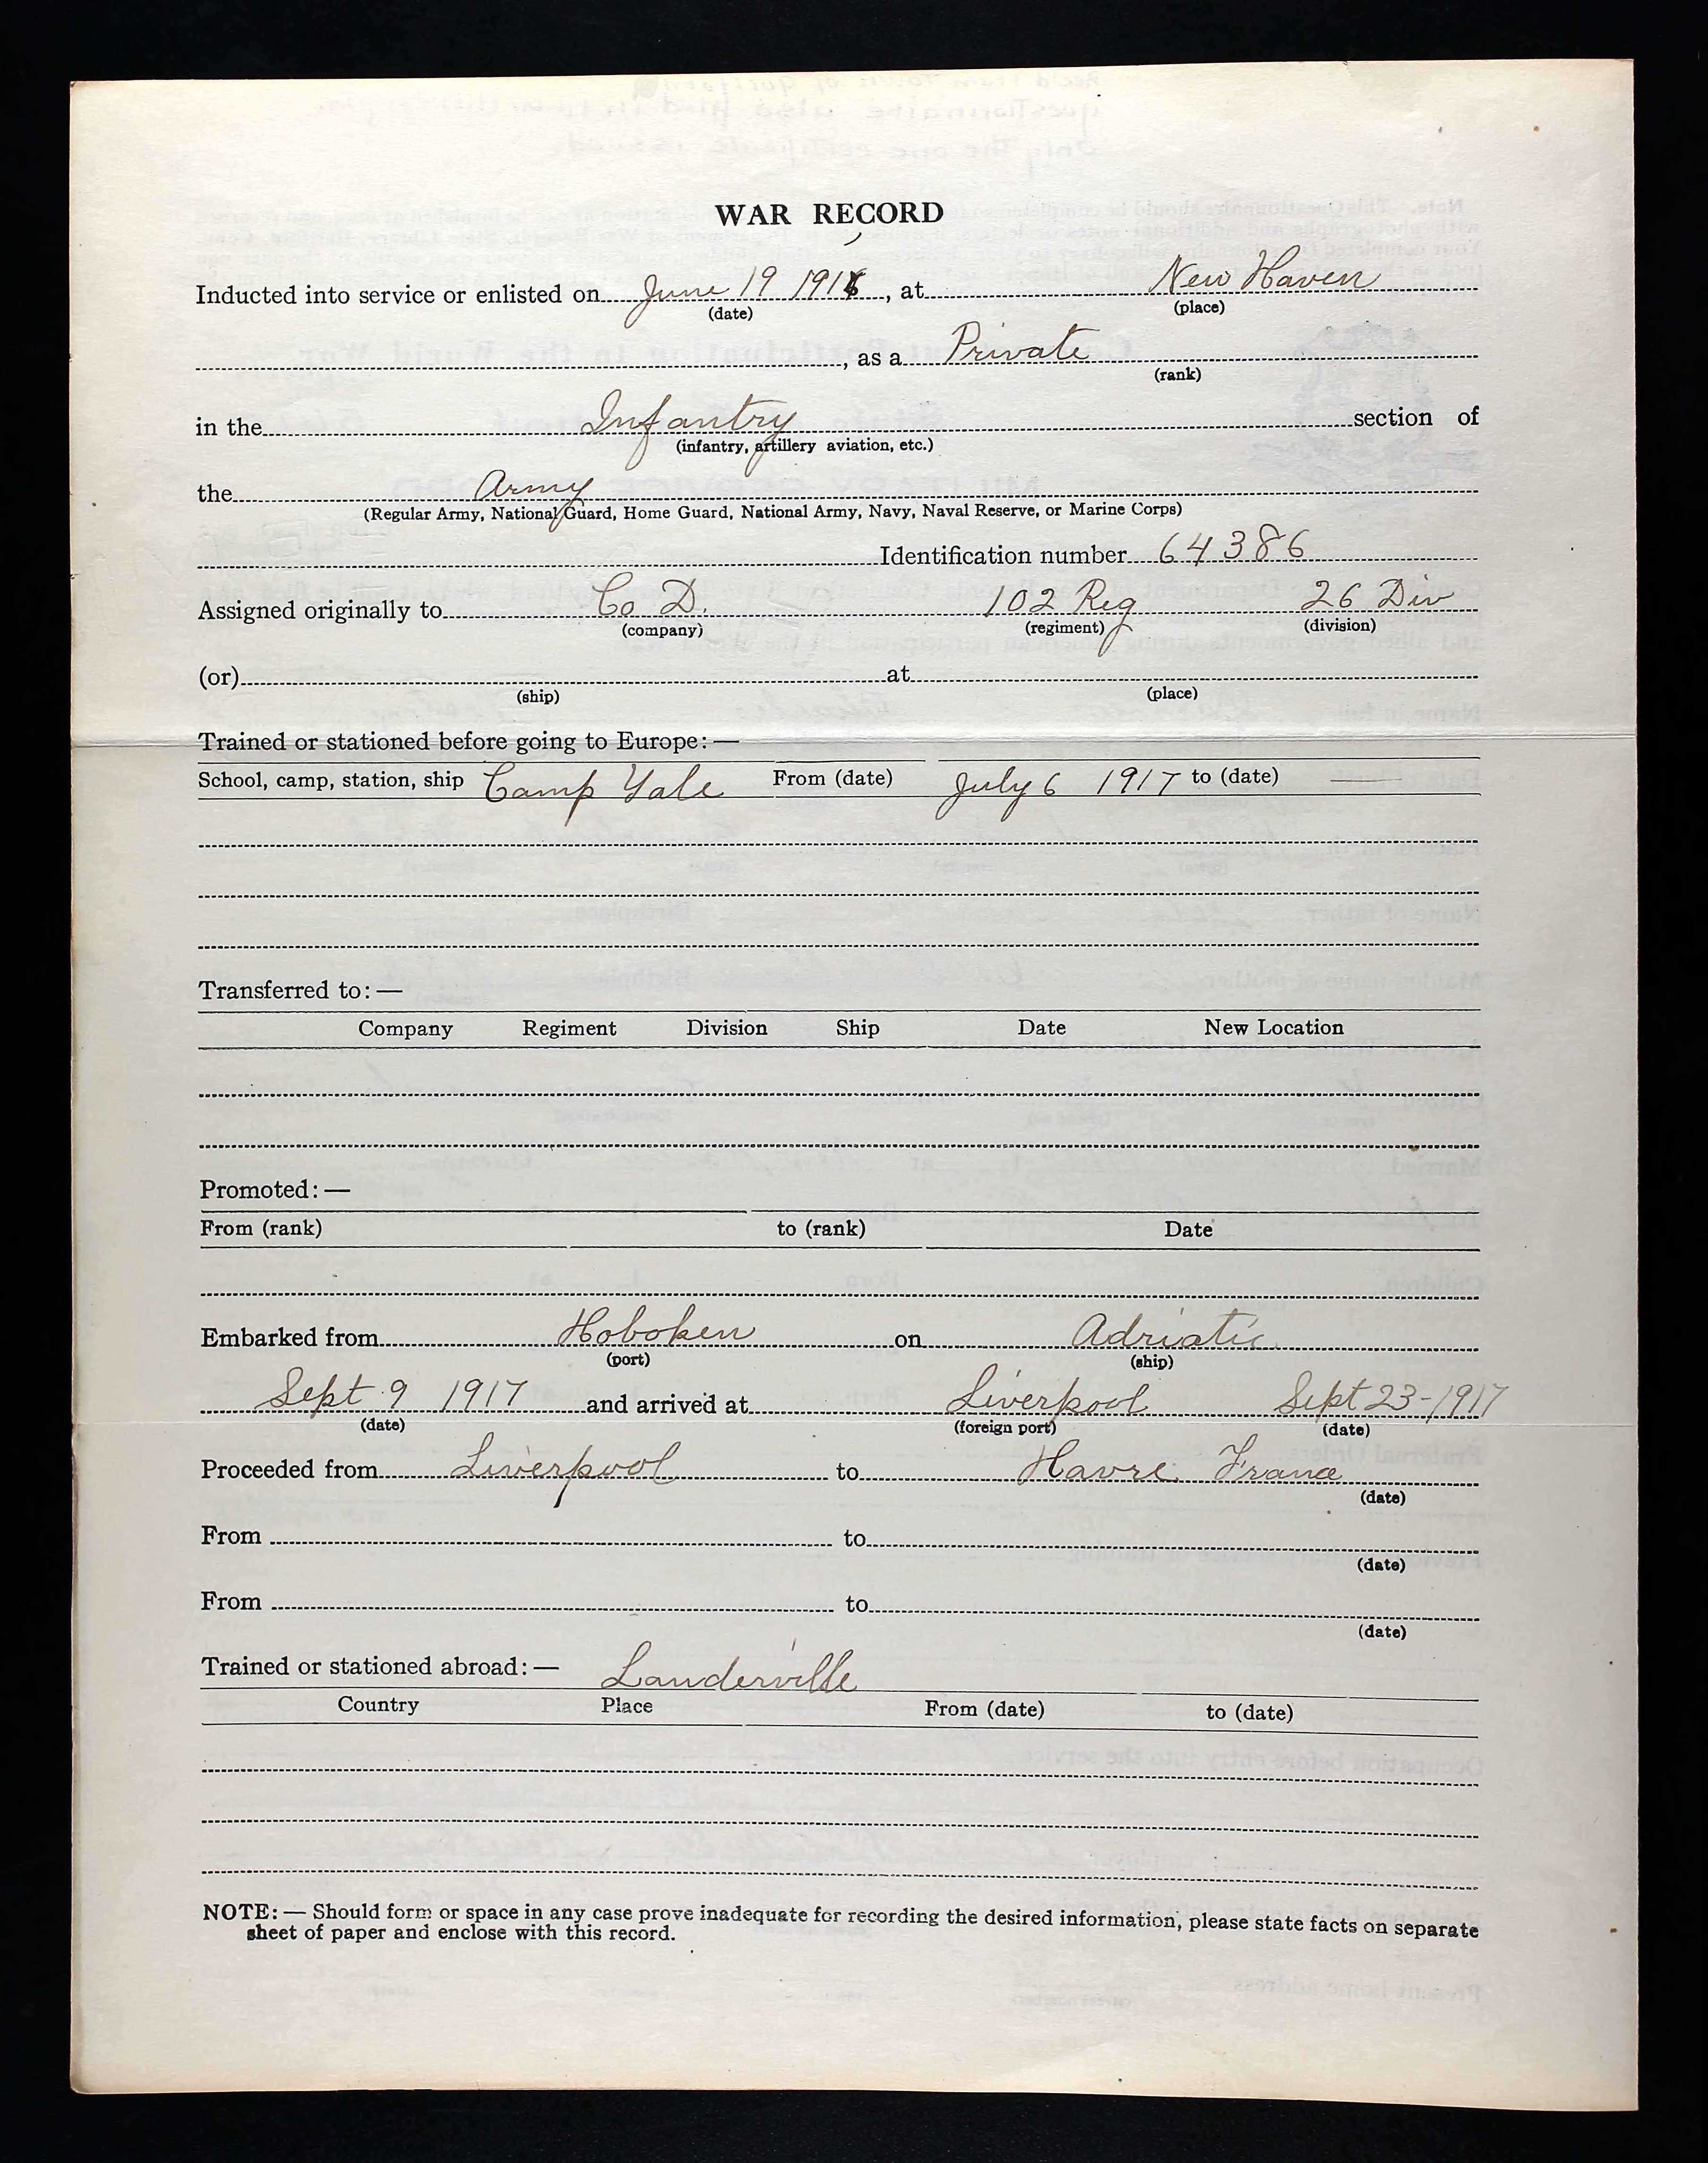 WAR RECORD
Inducted into service or enlisted on June 19 191 , at New Haven
(date) (place)
, as a Private
(rank)
in the Infantry section of
(infantry, artillery aviation, etc.)
the Army
(Regular Army, National Guard, Home Guard, National Army, Navy, Naval Reserve, or Marine Corps)
Identification number 64386
Assigned originally to Co D. 102 Reg 26 Div
(company) (regiment) (division)
(or) at
(ship) (place)
Trained or stationed before going to Europe:—
School, camp, station, ship Camp Yale From (date) July 6 1917 to (date) —
Transferred to:—
Company Regiment Division Ship Date New Location
Promoted:—
From (rank) to (rank) Date
Embarked from Hoboken on Adriatic
(port) (ship)
Sept 9 1917 and arrived at Liverpool Sept 23-1917
(date) (foreign port) (date)
Proceeded from Liverpool to Havre France
(date)
From to
(date)
From to
(date)
Trained or stationed abroad:— Landerville
Country Place From (date) to (date)
NOTE:— Should form or space in any case prove inadequate for recording the desired information, please state facts on separate
sheet of paper and enclose with this record.